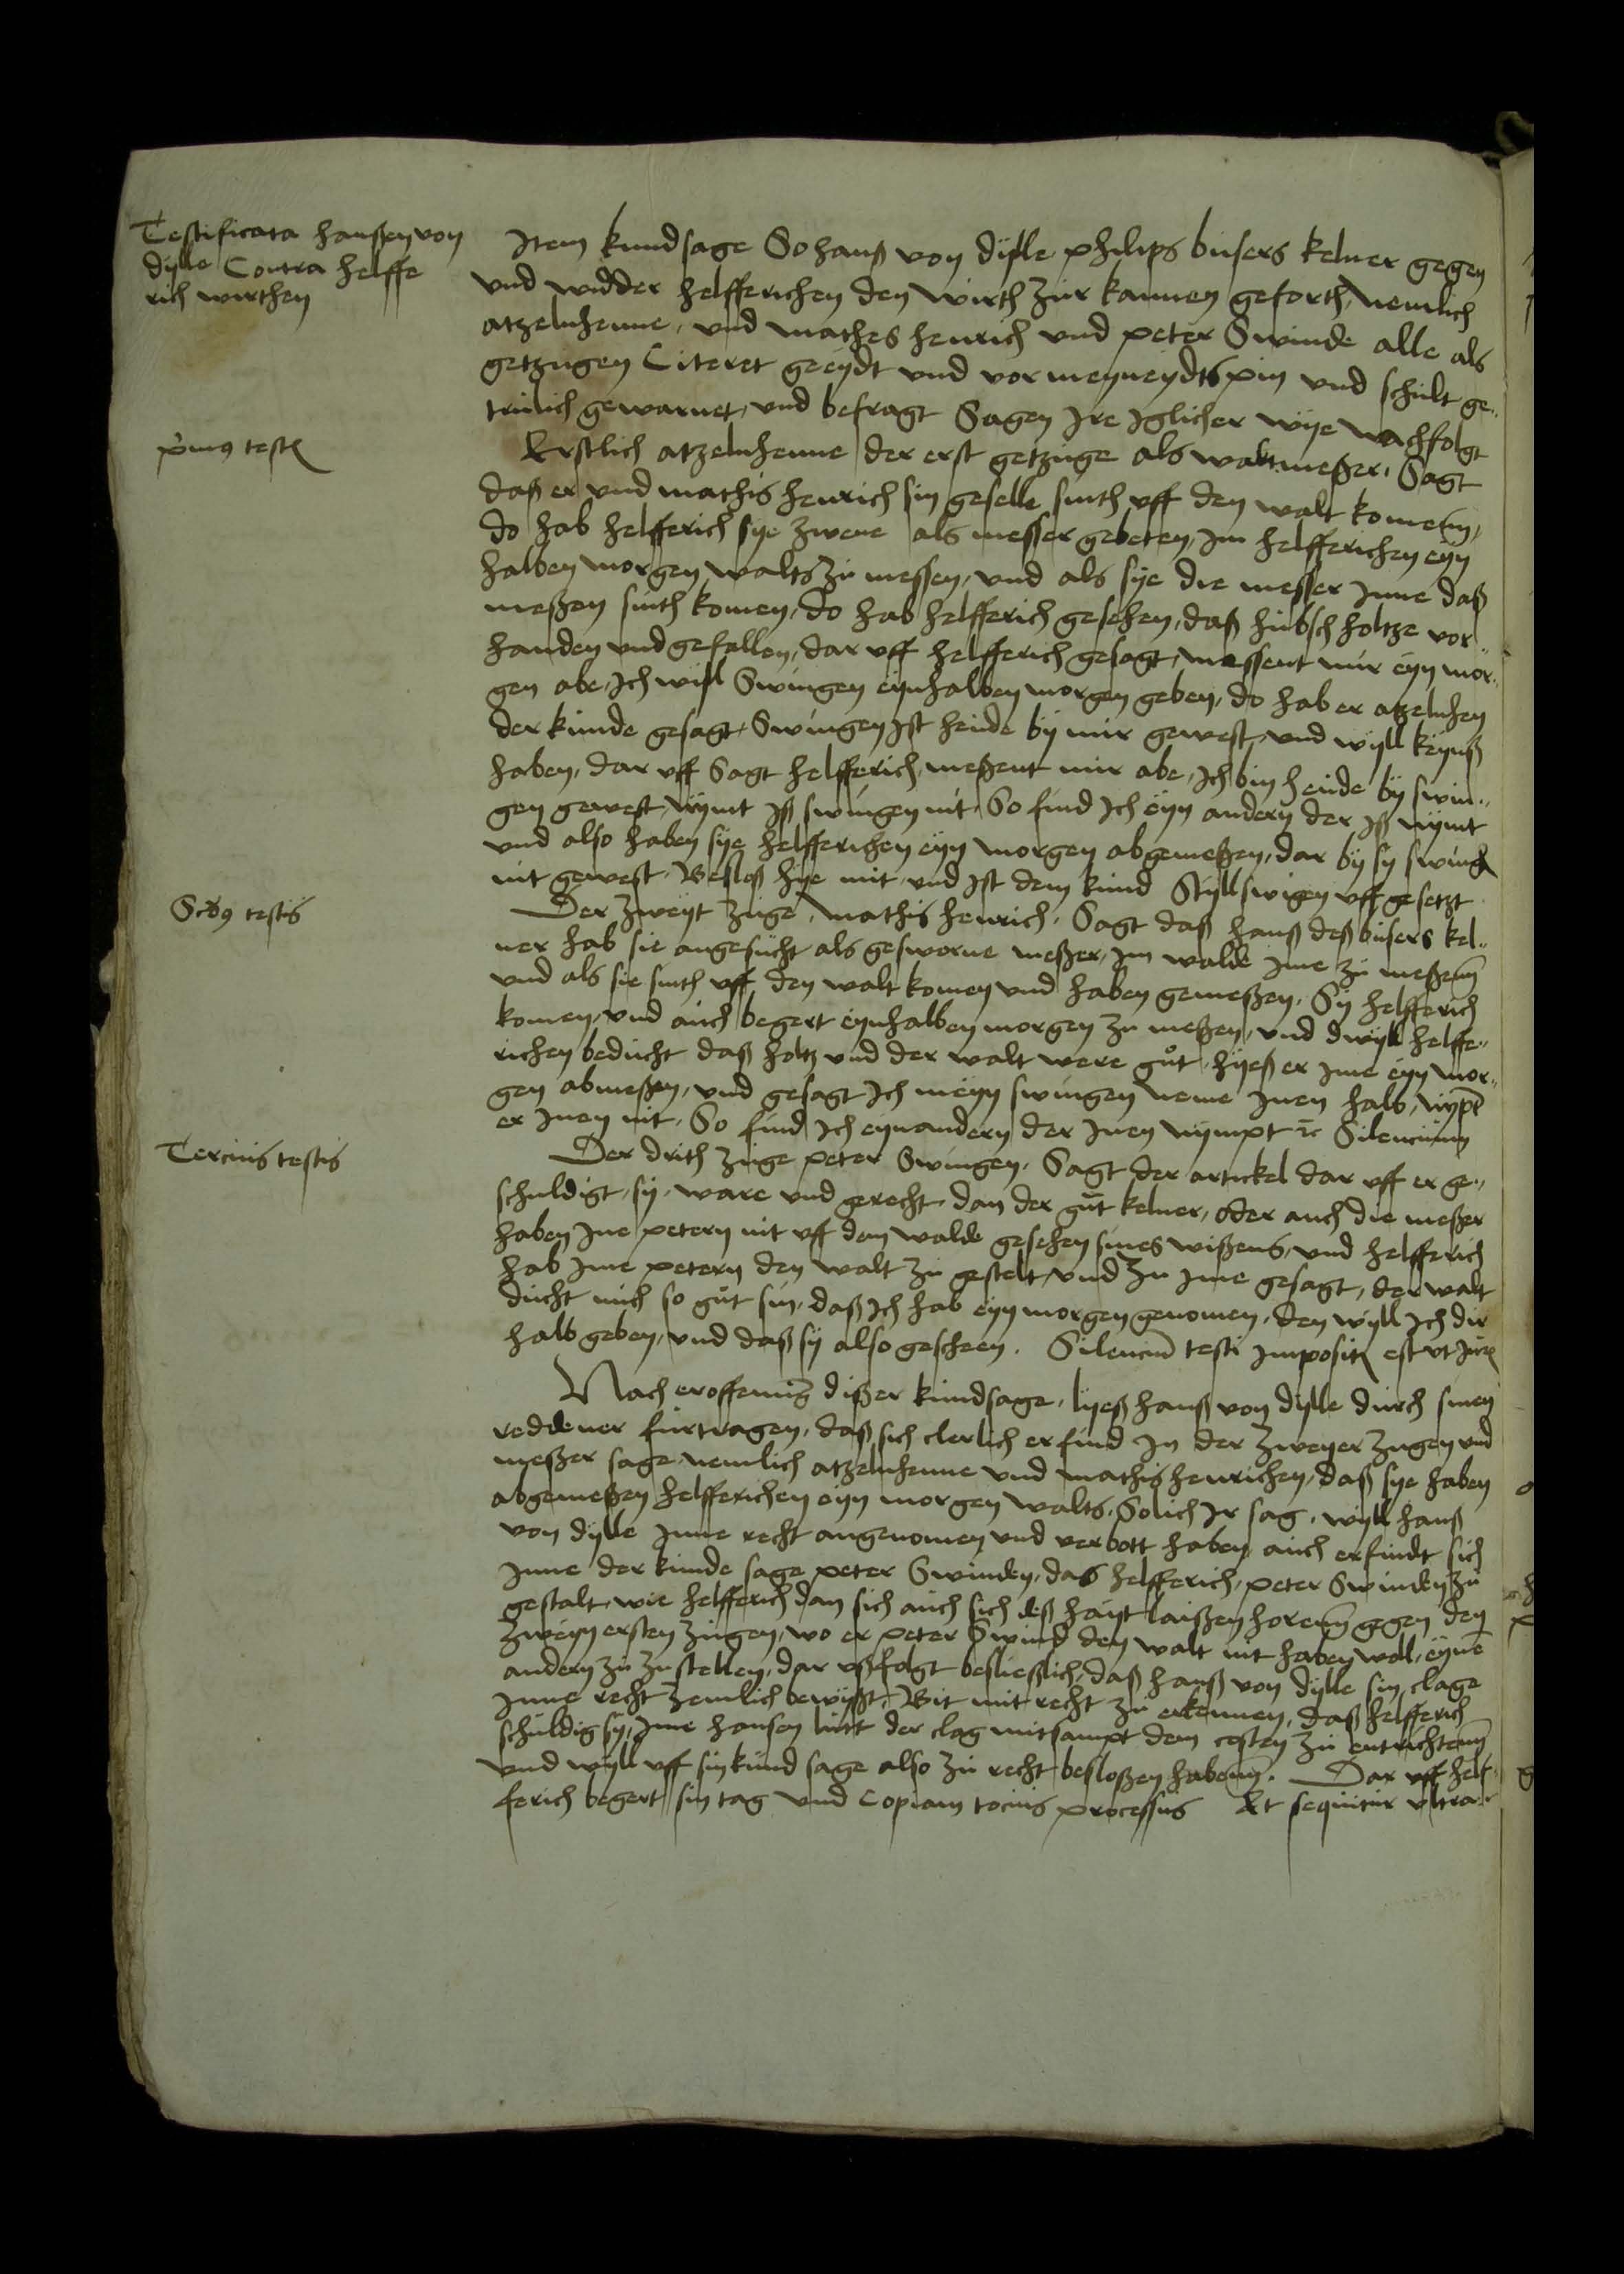 Testificata hanßen von
dylle Contra helffe
rich wirthen
Item kundsage So hanß von dylle philips busers kelner gegen
vnd widder helfferichen den wirth zur kannen geforth, nemlich
atzelnhenne, vnd mathes henrich vnd peter Swinde alle als
getzugen Citeret geeydt vnd vor meyneydts pin vnd schult ge„
trulich gewarnet, vnd befragt Sagen Ire Iglicher wye nachfolgt
p̓mꝯ testꝭ
Erstlich atzelnhenne der erst getzuge als waltmeßer, Sagt
daß er vnd mathis henrich sin geselle sinth vff den walt komen̄,
do hab helfferich sye zwene als messer gebeten, Im helfferichen eyn
halben morgen walts zu messen, vnd als sye die messer Inne daß
meßen sinth komen, do hab helfferich gesehen, daß hubsch holtze vor„
handen vnd gefallen, dar vff helfferich gesagt, messent mir eyn mor„
gen abe, Ich will Swingen eynhalben morgen geben, do hab er atzelnhen
der kunde gesagt, Swingen Ist heude by mir gewest, vnd wyll keynß
haben, dar vff Sagt helfferich, meßent mir abe, Ich bin heude by swin„
gen gewest, nymt Iß swingen nit, So find Ich eyn andern der Iß nymt
vnd also haben sye helfferichen eyn morgen abgemeßen, dar by sy swingen
nit gewest, Besloß hye mit, vnd Ist dem kund Styllswigen vffgesetzt
Scd̓ꝯ testis
Der zweyt zuge, mathis henrich, Sagt daß hanß deß busers kel„
ner hab sie angesucht als gesworne meßer, Im walde Ime zu meßenn̄
vnd als sie sinth vff den walt komen vnd haben gemeßen, Sy helfferich
komen, vnd auch begert eynhalben morgen zu meßen, vnd dwyll helffe„
richen beducht daß holtz vnd der walt were gut, hyeß er Ime eyn mor„
gen abmeßen, vnd gesagt Ich meyn swingen neme Inen halb, nypt
er Inen nit, So find Ich eynandern der Inen nympt ꝛc Silencium
Tercius testis
Der drith zuge peter Swingen, Sagt der artickel dar vff er ge„
schuldigt, sy, ware vnd gerecht, dan der gut kelner, oder auch die meßer
haben Ine petern nit vff dem walde gesehen sines wißens, vnd helfferich
hab Ime petern den walt zu gestelt, vnd zu Ime gesagt, der walt
ducht mich so gut sin, daß Ich hab eyn morgen genomen, den wyll Ich dir
halb geben, vnd daß sy also gescheen. Silenciu̅ testi Impositꝭ est vt Iurꝭ
Nach eroffenu̅g dißer kundsage, lyeß hanß von dylle durch sinen
reddener furtragen, daß sich clerlich erfind In der zweyer zugen vnd
meßer sage, nemlich atzelnhenne vnd mathis henrichen, daß sye haben
abgemeßen helfferichen eyn morgen walts, Solich Ir sag, wyll hanß
von dylle Inne recht angenomen vnd verbott haben, auch erfindt sich
Inne der kunde sage peter Swinden, das helfferich, peter Swinden zu
gestalt, wie helfferich dan sich auch sich deß hayt laißen horenn̄ gegen den
zweyn ersten zugen, wo er peter Swind den walt nit haben woll, eyne̅
andern zu zustellen, dar vß folgt besließlich, daß hanß von dylle sin clage
Inne recht zemlich bewyßt, Bit mit recht zu erkennen, daß helfferich
schuldig sy, Ime hansen lutt der clag mitsampt dem costen zu entrichtenn̄
vnd wyll vff sin kundsage also zu recht besloßen habenn̄. Dar vff helf„
ferich begert sin tag vnd Copiam tocius processus Et sequitur vltra